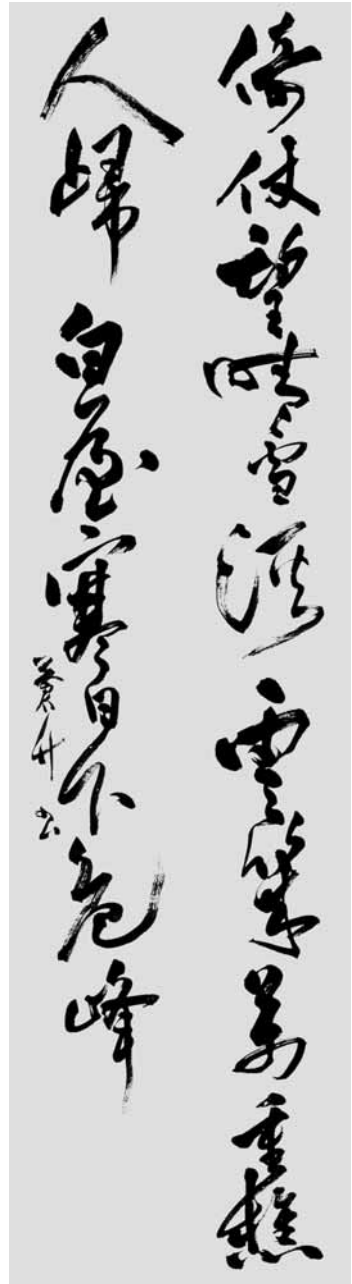 倚仗望晴雪溪雲幾萬重樵
人歸白屋寒日下危峰
蒼升书